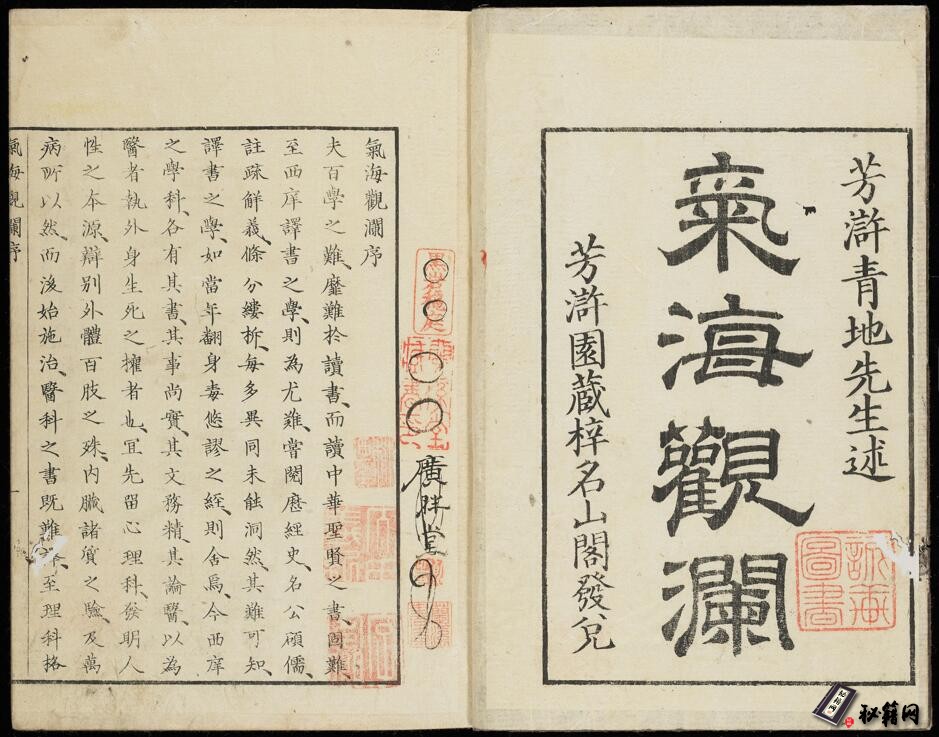 芳滸青地先生述
氣海觀瀾
芳滸園蔵梓名山閣發兌
圖書
廣胖堂
氣海觀瀾序
夫百學之難靡難於讀書而讀中華聖賢之書固難
至西庠譯書之學則為尤難嘗閱歷經史名公碩儒
註疏解義條分縷析每多異同未能洞然其難可知
譯書之學如當年翻身毒悠謬之經則舍焉今西庠
之學科各有其書其事尚實其文務精其論醫以為
醫者執外身生死之權者也宜先留心理科發明人
性之本源辯別外體百肢之殊內臟諸質之驗及萬
病所以然而後始施治醫科之書既難譯至理科格
氣海觀瀾序
一
秘籍网